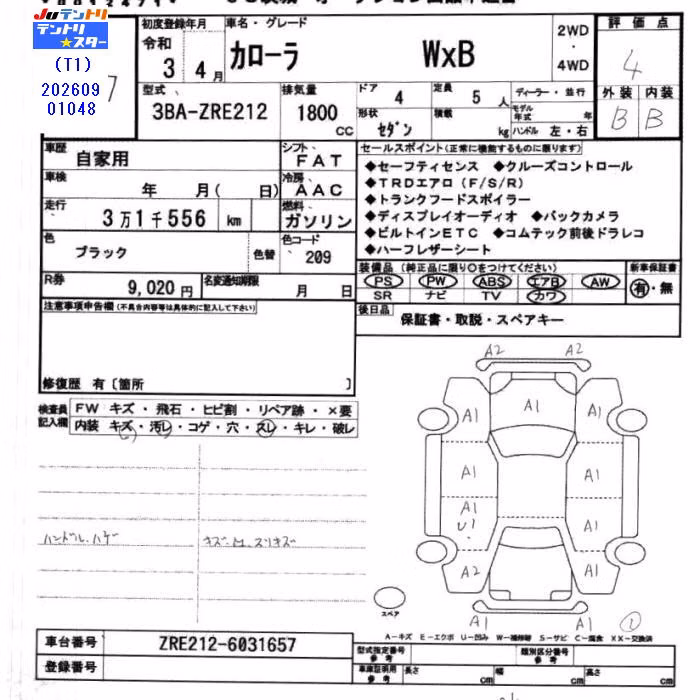 JUテントリ
テントリ★スター
(T1)
202609
01048
7
初度登録年月
令和
3 4月
車名・グレード
カローラ WxB
2WD・4WD
評価点
4
外装 内装
B B
型式
3BA-ZRE212
排気量
1800 CC
ドア 4
形状 セダン
定員 5人
積載 kg
ディーラー・並行
モデル年式 年
ハンドル 左・右
車歴 自家用
シフト FAT
車検 年 月( 日)
冷房 AAC
走行 3万1千556 km
燃料 ガソリン
色 ブラック 色替
色コード 209
R券 9,020円
名変通知期限 月 日
セールスポイント(正常に機能するものに限ります)
◆セーフティセンス ◆クルーズコントロール
◆TRDエアロ(F/S/R)
◆トランクフードスポイラー
◆ディスプレイオーディオ ◆バックカメラ
◆ビルトインETC ◆コムテック前後ドラレコ
◆ハーフレザーシート
装備品(純正品に限り○をつけてください)
新車保証書
PS PW ABS エアB AW
SR ナビ TV カワ
有・無
後日品 保証書・取説・スペアキー
注意事項申告欄(不具合内容等は具体的に記入して下さい)
修復歴 有〔箇所 〕
検査員記入欄
FW キズ・飛石・ヒビ割・リペア跡・×要
内装 キズ・汚レ・コゲ・穴・スレ・キレ・破レ
ハンドル.ハゲ
キズ.M.スリキズ
A2 A2
A1 A1 A1
A1 A1
A1 U1 A1
A2 A1
A1 A1
スペア
A-キズ E-エクボ U-凹み W-補修跡 S-サビ C-腐食 XX-交換済
車台番号 ZRE212-6031657
登録番号
型式指定番号 参考
類別区分番号 参考
車庫証明用 参考
長さ cm 幅 cm 高さ cm